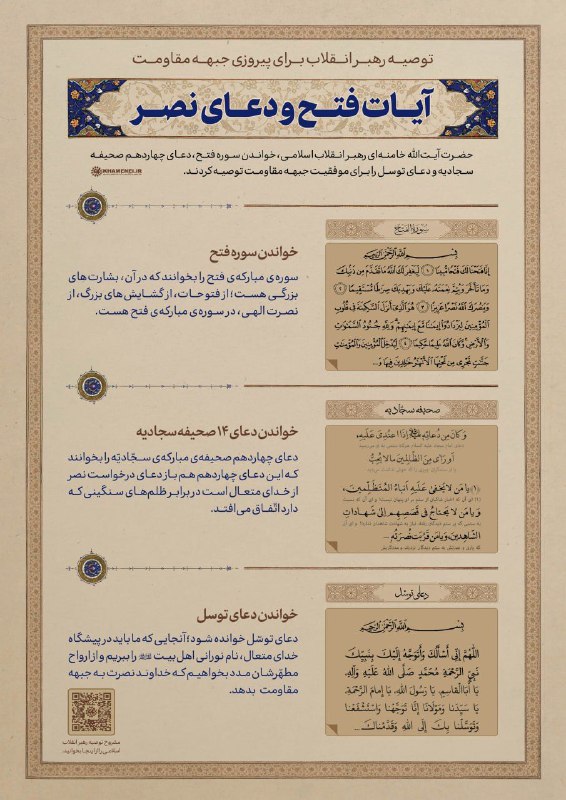 توصیه رهبر انقلاب برای پیروزی جبهه مقاومت
آیات فتح و دعای نصر
حضرت آیت‌الله خامنه‌ای رهبر انقلاب اسلامی، خواندن سوره فتح، دعای چهاردهم صحیفه
سجادیه و دعای توسل را برای موفقیت جبهه مقاومت توصیه کردند.
KHAMENEI.IR
سورة الفتح
خواندن سوره فتح
سوره‌ی مبارکه‌ی فتح را بخوانند که در آن، بشارت‌های
بزرگی هست؛ از فتوحات، از گشایش‌های بزرگ، از
نصرت الهی، در سوره‌ی مبارکه‌ی فتح هست.
بِسْمِ اللَّهِ الرَّحْمَنِ الرَّحِيمِ
إِنَّا فَتَحْنَا لَكَ فَتْحًا مُبِينًا ﴿۱﴾ لِيَغْفِرَ لَكَ اللَّهُ مَا تَقَدَّمَ مِن ذَنْبِكَ
وَمَا تَأَخَّرَ وَيُتِمَّ نِعْمَتَهُ عَلَيْكَ وَيَهْدِيَكَ صِرَاطًا مُسْتَقِيمًا ﴿۲﴾
وَيَنْصُرَكَ اللَّهُ نَصْرًا عَزِيزًا ﴿۳﴾ هُوَ الَّذِي أَنْزَلَ السَّكِينَةَ فِي قُلُوبِ
الْمُؤْمِنِينَ لِيَزْدَادُوا إِيمَانًا مَعَ إِيمَانِهِمْ وَلِلَّهِ جُنُودُ السَّمَاوَاتِ
وَالْأَرْضِ وَكَانَ اللَّهُ عَلِيمًا حَكِيمًا ﴿۴﴾ لِيُدْخِلَ الْمُؤْمِنِينَ وَالْمُؤْمِنَاتِ
جَنَّاتٍ تَجْرِي مِنْ تَحْتِهَا الْأَنْهَارُ خَالِدِينَ فِيهَا وَ...
صحیفه سجادیه
خواندن دعای ۱۴ صحیفه سجادیه
دعای چهاردهم صحیفه‌ی مبارکه‌ی سجّادیّه را بخوانند
که این دعای چهاردهم هم باز دعای درخواست نصر
از خدای متعال است در برابر ظلم‌های سنگینی که
دارد اتّفاق می‌افتد.
وَ كَانَ مِنْ دُعَائِهِ إِذَا اعْتُدِيَ عَلَيْهِ،
أَوْ رَأَى مِنَ الظَّالِمِينَ مَا لَا يُحِبُّ
(۱) يَا مَنْ لَا يَخْفَى عَلَيْهِ أَنْبَاءُ الْمُتَظَلِّمِينَ،
وَ يَا مَنْ لَا يَحْتَاجُ فِي قَصَصِهِمْ إِلَى شَهَادَاتِ
الشَّاهِدِينَ، وَ يَا مَنْ قَرُبَتْ نُصْرَتُهُ ...
دعای توسل
خواندن دعای توسل
دعای توسّل خوانده شود؛ آنجایی که ما باید در پیشگاه
خدای متعال، نام نورانی اهل بیت را ببریم و از ارواح
مطهّرشان مدد بخواهیم که خداوند نصرت به جبهه
مقاومت بدهد.
بِسْمِ اللَّهِ الرَّحْمَنِ الرَّحِيمِ
اللّٰهُمَّ إِنِّي أَسْأَلُكَ وَأَتَوَجَّهُ إِلَيْكَ بِنَبِيِّكَ
نَبِيِّ الرَّحْمَةِ مُحَمَّدٍ صَلَّى اللَّهُ عَلَيْهِ وَآلِهِ،
يَا أَبَا الْقَاسِمِ، يَا رَسُولَ اللَّهِ، يَا إِمَامَ الرَّحْمَةِ،
يَا سَيِّدَنَا وَمَوْلَانَا إِنَّا تَوَجَّهْنَا وَاسْتَشْفَعْنَا
وَتَوَسَّلْنَا بِكَ إِلَى اللَّهِ وَقَدَّمْنَاكَ ...
مشروح توصیه رهبر انقلاب
اسلامی را از اینجا بخوانید.